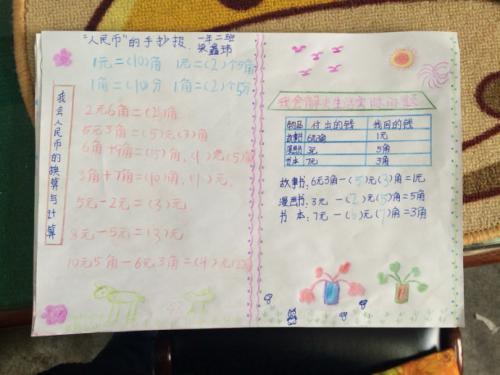 "人民币"的手抄报
一年二班
我会人民币的换算与计算
1元=(10)角 1元=(2)个5角
1角=(10)分 1角=(2)个5分
5元3角=(5)元(3)角
3角+7角=(10)角,(1)元
5元-2元=(3)元
8元-5元=(3)元
我会解决生活实际问题
物品 付出的钱 找回的钱
故事书 6元3角 1元
漫画书 3元 5角
书本 7元 3角
故事书:6元3角-(5)元(3)角=1元
漫画书:3元-(2)元(5)角=5角
书 本:7元-(6)元(7)角=3角